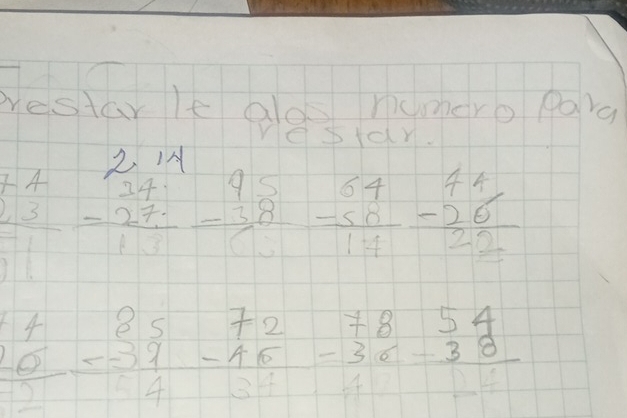 Prestar le alos numero para
restar.
2 14
74 34 95 64 44
23 -27 -38 -58 -26
51 13 63 14 22
4 85 72 78 54
6 -39 -46 -36 -38
2 54 34 42 24